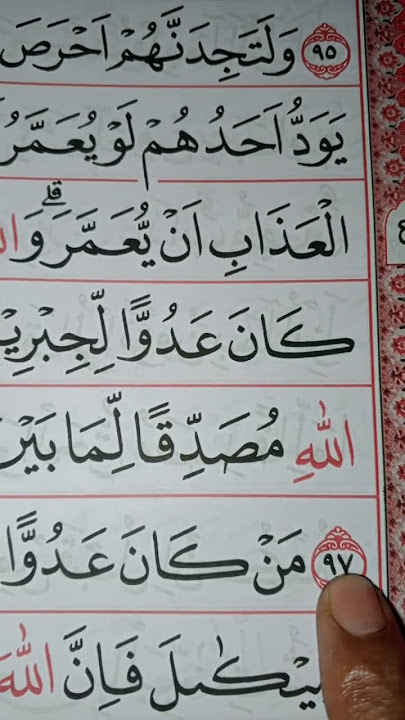 ﴿٩٥﴾ وَلَتَجِدَنَّهُمْ اَحْرَصَ
يَوَدُّ اَحَدُهُمْ لَوْ يُعَمَّرُ
الْعَذَابِ اَنْ يُّعَمَّرَ ۗ وَال
كَانَ عَدُوًّا لِّجِبْرِيْ
اللّٰهِ مُصَدِّقًا لِّمَا بَيْنَ
﴿٩٧﴾ مَنْ كَانَ عَدُوًّا
يْكٰىلَ فَاِنَّ اللّٰهَ